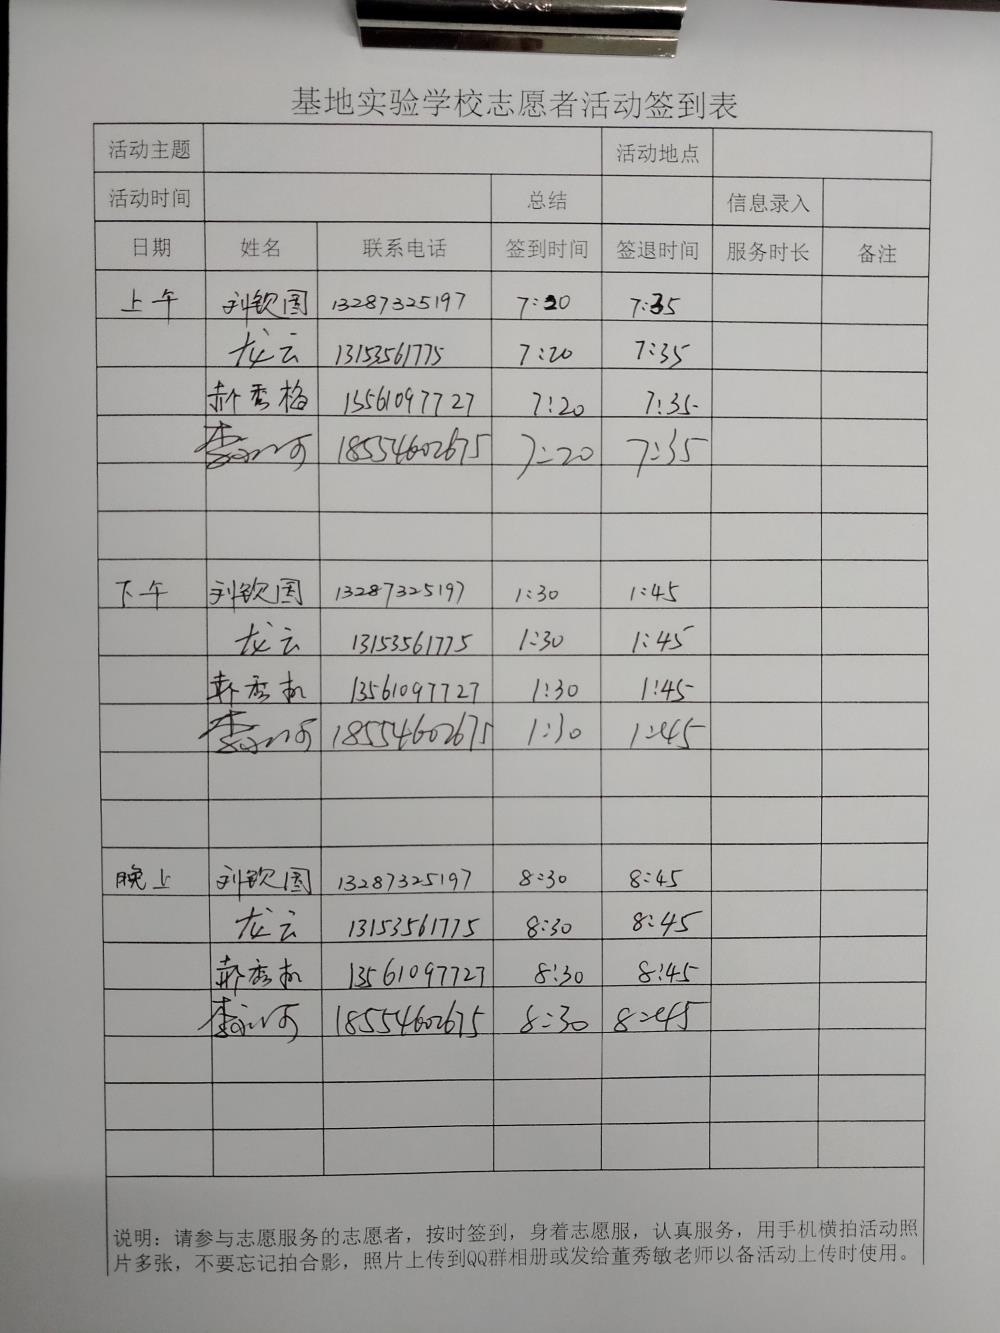 基地实验学校志愿者活动签到表
活动主题 活动地点
活动时间 总结 信息录入
日期 姓名 联系电话 签到时间 签退时间 服务时长 备注
上午 刘钦国 13287325197 7:20 7:35
龙云 13153561775 7:20 7:35
郝秀梅 13561097727 7:20 7:35
李 18554602675 7:20 7:35
下午 刘钦国 13287325197 1:30 1:45
龙云 13153561775 1:30 1:45
郝秀 13561097727 1:30 1:45
李 18554602675 1:30 1:45
晚上 刘钦国 13287325197 8:30 8:45
龙云 13153561775 8:30 8:45
郝秀 13561097727 8:30 8:45
李 18554602675 8:30 8:45
说明：请参与志愿服务的志愿者，按时签到，身着志愿服，认真服务，用手机横拍活动照
片多张，不要忘记拍合影，照片上传到QQ群相册或发给董秀敏老师以备活动上传时使用。